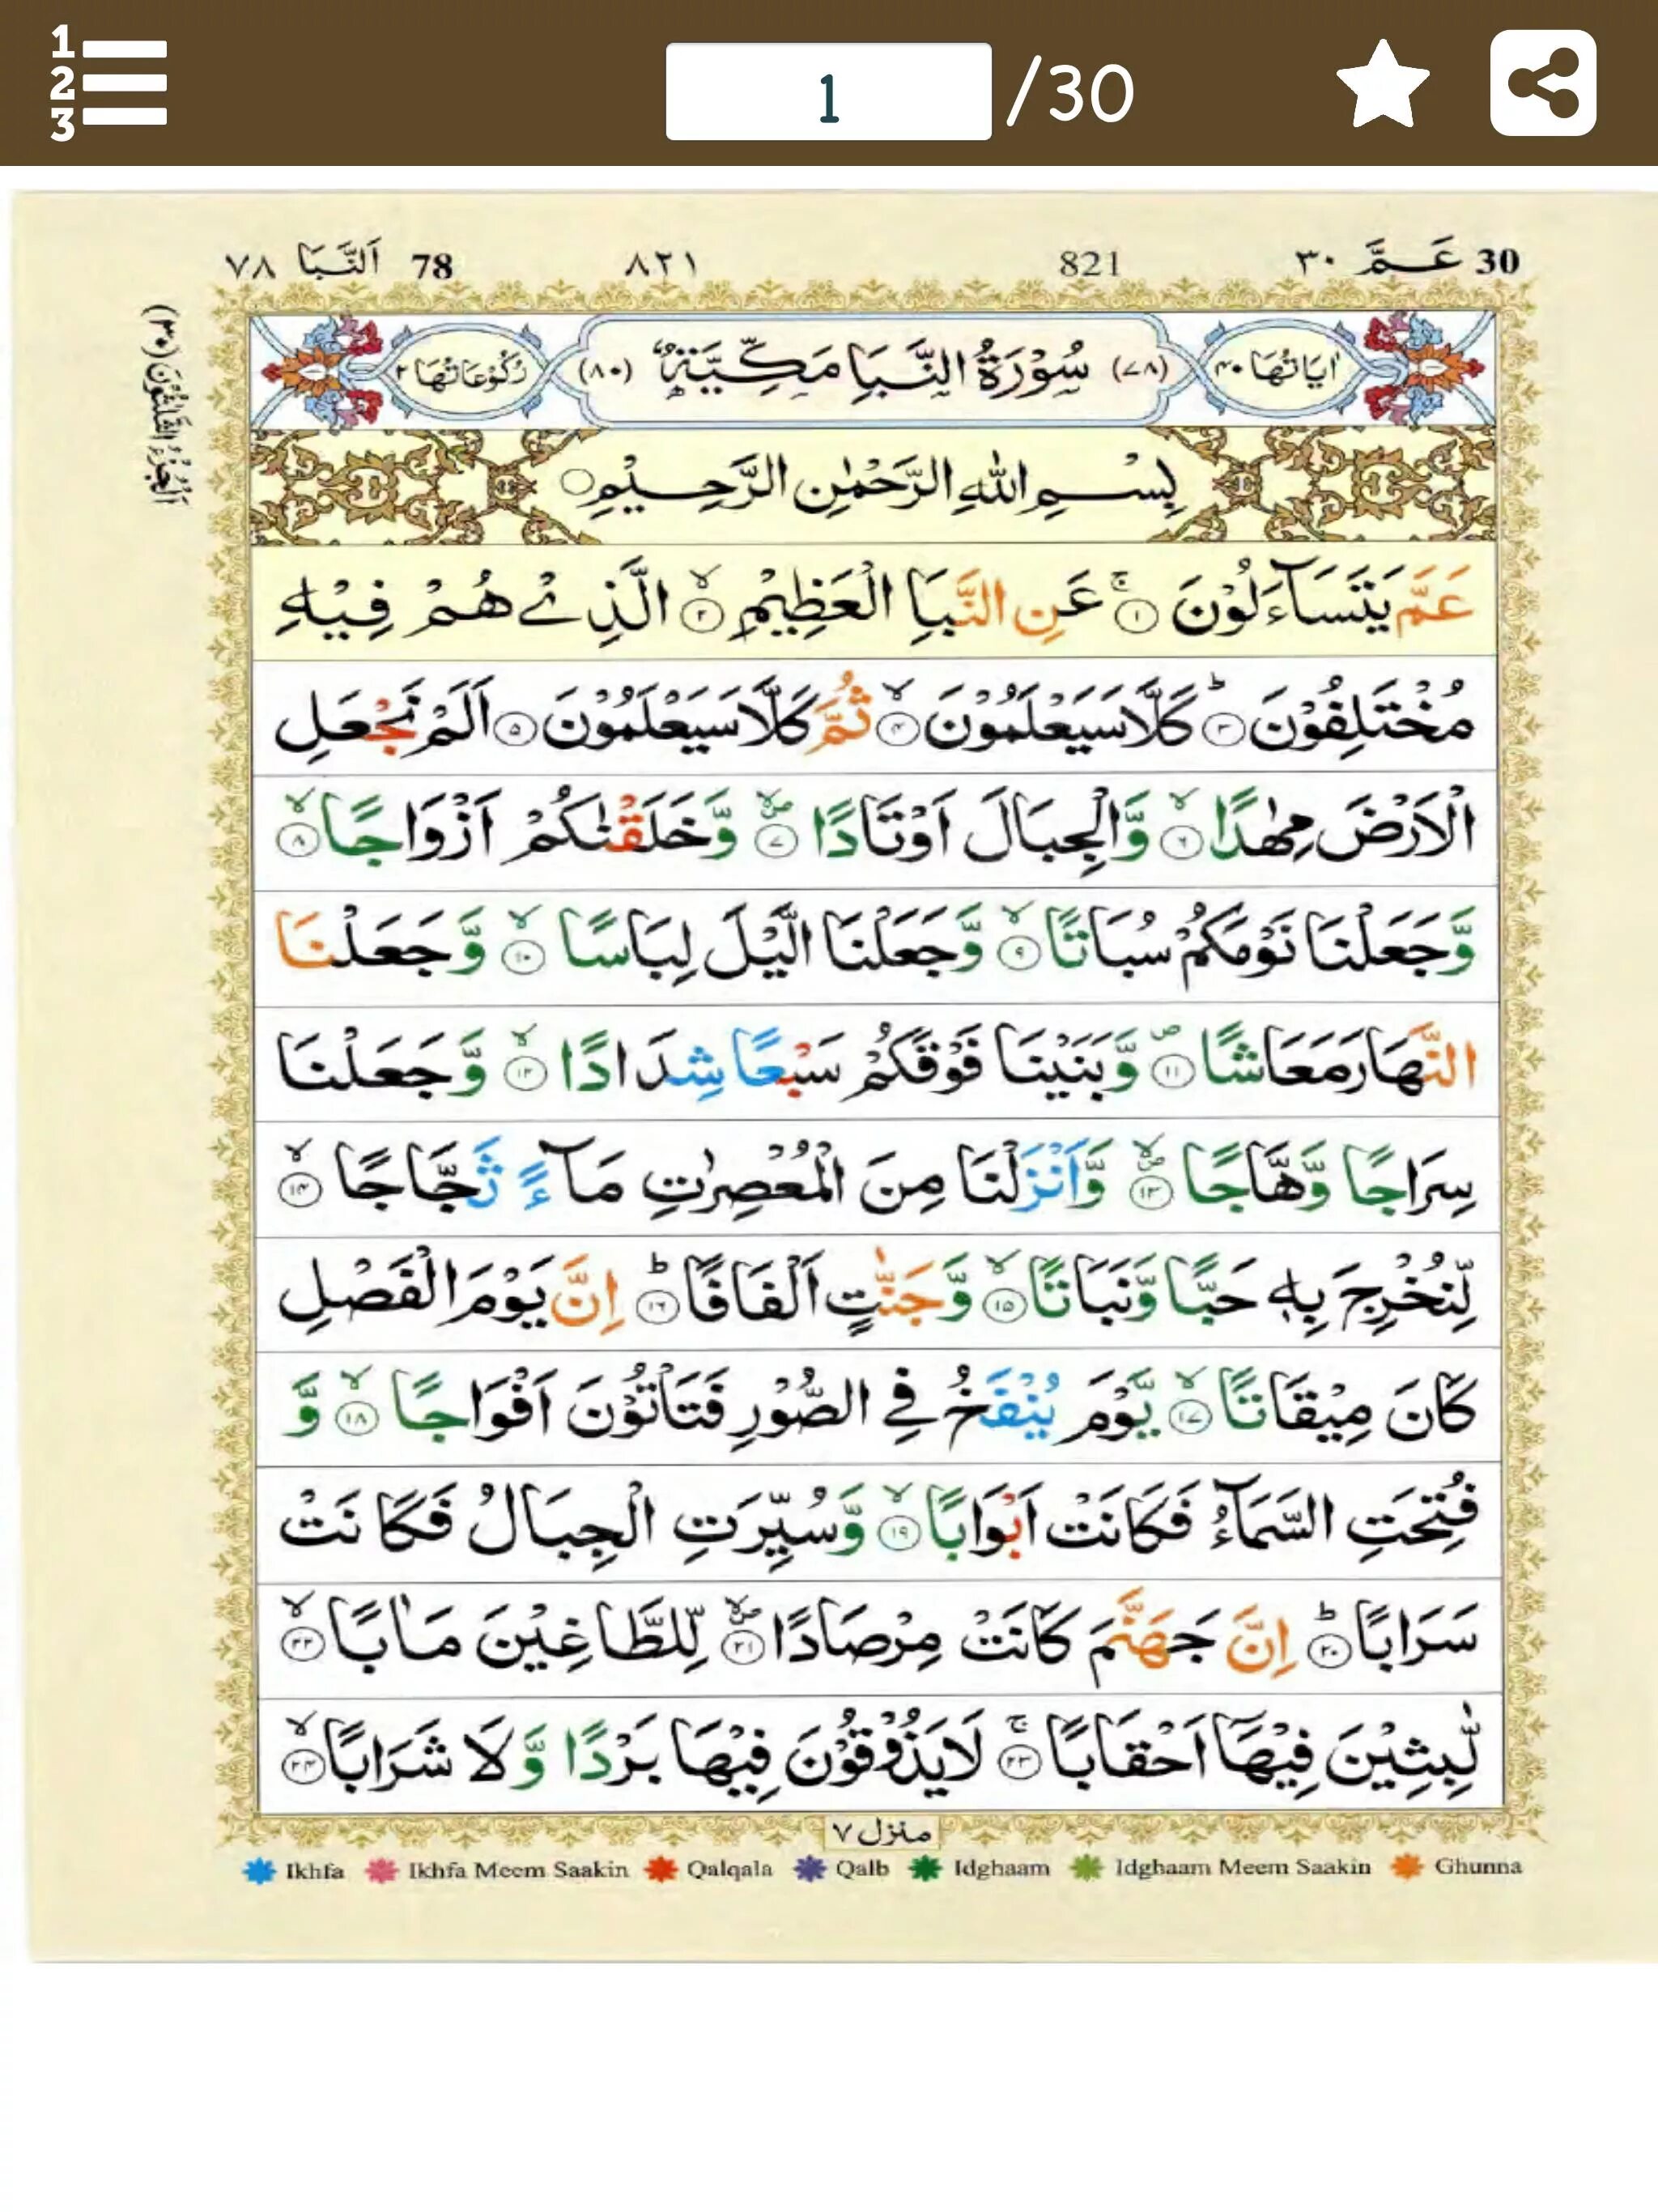 1
2
3
1 /30
30 عَـمَّ ٣٠ 821 ٨٢١ 78 اَلنَّبَا ٧٨
اَلْجُزْءُ الثَّلٰثُوْنَ (٣٠)
اٰيَاتُهَا ٤٠ (٧٨) سُوْرَةُ النَّبَاِ مَكِّيَّةٌ (٨٠) رُكُوْعَاتُهَا ٢
بِسْمِ اللّٰهِ الرَّحْمٰنِ الرَّحِيْمِ
عَمَّ يَتَسَآءَلُوْنَ ۚ ١ عَنِ النَّبَاِ الْعَظِيْمِ ۙ ٢ الَّذِيْ هُمْ فِيْهِ
مُخْتَلِفُوْنَ ؕ ٣ كَلَّا سَيَعْلَمُوْنَ ۙ ٤ ثُمَّ كَلَّا سَيَعْلَمُوْنَ ٥ اَلَمْ نَجْعَلِ
الْاَرْضَ مِهٰدًا ۙ ٦ وَّالْجِبَالَ اَوْتَادًا ۪ۙ ٧ وَّخَلَقْنٰكُمْ اَزْوَاجًا ۙ ٨
وَّجَعَلْنَا نَوْمَكُمْ سُبَاتًا ۙ ٩ وَّجَعَلْنَا الَّيْلَ لِبَاسًا ۙ ١٠ وَّجَعَلْنَا
النَّهَارَ مَعَاشًا ۪ ١١ وَّبَنَيْنَا فَوْقَكُمْ سَبْعًا شِدَادًا ۙ ١٢ وَّجَعَلْنَا
سِرَاجًا وَّهَّاجًا ۪ۙ ١٣ وَّاَنْزَلْنَا مِنَ الْمُعْصِرٰتِ مَآءً ثَجَّاجًا ۙ ١٤
لِّنُخْرِجَ بِهٖ حَبًّا وَّنَبَاتًا ۙ ١٥ وَّجَنّٰتٍ اَلْفَافًا ؕ ١٦ اِنَّ يَوْمَ الْفَصْلِ
كَانَ مِيْقَاتًا ۙ ١٧ يَّوْمَ يُنْفَخُ فِي الصُّوْرِ فَتَاْتُوْنَ اَفْوَاجًا ۙ ١٨ وَّ
فُتِحَتِ السَّمَآءُ فَكَانَتْ اَبْوَابًا ۙ ١٩ وَّسُيِّرَتِ الْجِبَالُ فَكَانَتْ
سَرَابًا ؕ ٢٠ اِنَّ جَهَنَّمَ كَانَتْ مِرْصَادًا ۪ۙ ٢١ لِّلطَّاغِيْنَ مَاٰبًا ۙ ٢٢
لّٰبِثِيْنَ فِيْهَآ اَحْقَابًا ۚ ٢٣ لَا يَذُوْقُوْنَ فِيْهَا بَرْدًا وَّلَا شَرَابًا ۙ ٢٤
منزل ٧
Ikhfa Ikhfa Meem Saakin Qalqala Qalb Idghaam Idghaam Meem Saakin Ghunna